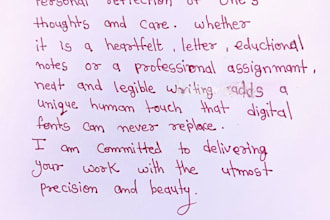 personal reflection of one's
thoughts and care. whether
it is a heartfelt, letter, eductional
notes or a professional assignment,
neat and legible writing adds a
unique human touch that digital
fonts can never replace.
I am committed to delivering
your work with the utmost
precision and beauty.